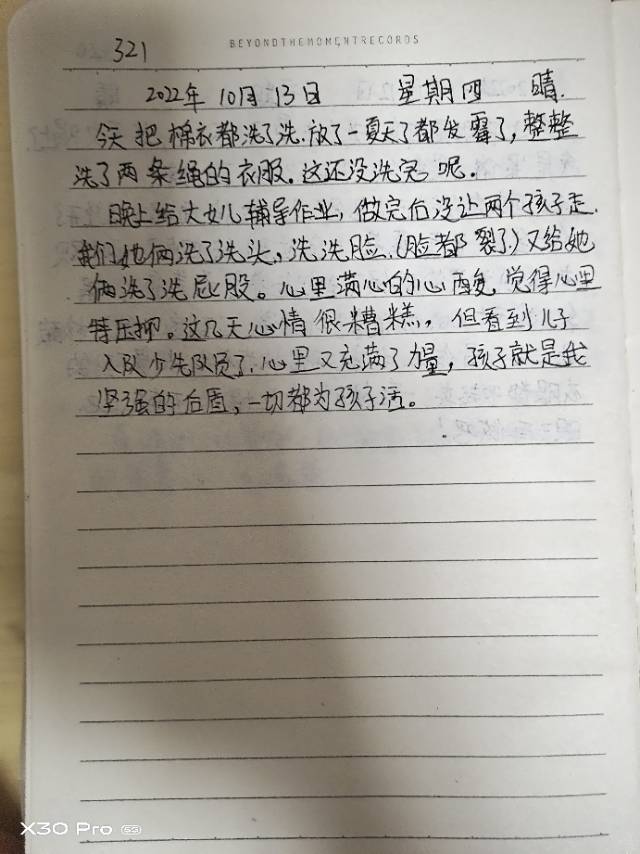 321
BEYONDTHEMOMENTRECORDS
2022年 10月 13日 星期四 晴.
今天把棉衣都洗了洗.放了一夏天了都发霉了,整整
洗了两条绳的衣服。这还没洗完呢.
晚上给大女儿辅导作业,做完后没让两个孩子走.
我们她俩洗了洗头,洗洗脸.(脸都裂了)又给她
俩洗了洗屁股。心里满心的心酸,觉得心里
特压抑。这几天心情很糟糕,但看到儿子
入队少先队员了.心里又充满了力量,孩子就是我
坚强的后盾,一切都为孩子活。
X30 Pro 5G